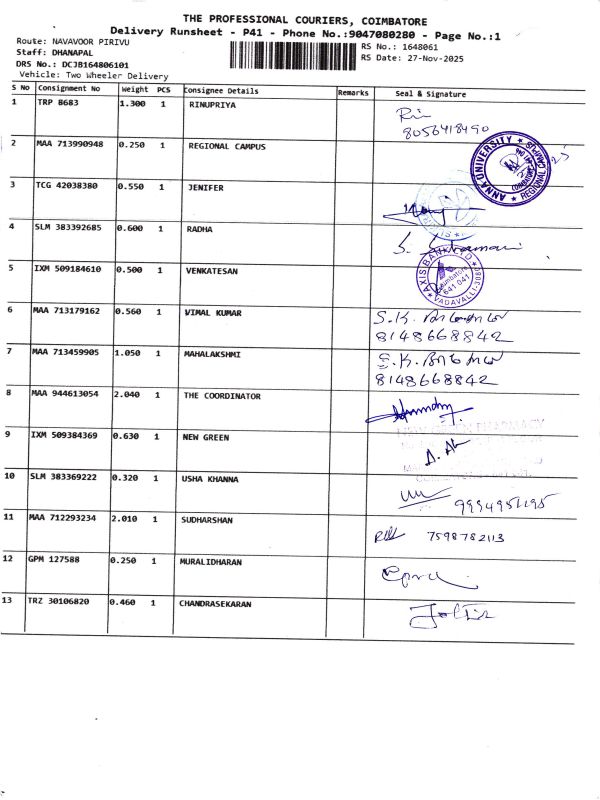 THE PROFESSIONAL COURIERS, COIMBATORE
Delivery Runsheet - P41 - Phone No.:9047080280 - Page No.:1
Route: NAVAVOOR PIRIVU
RS No.: 1648061
Staff: DHANAPAL
RS Date: 27-Nov-2025
DRS No.: DCJB164806101
Vehicle: Two Wheeler Delivery
S No Consignment No Weight PCS Consignee Details Remarks Seal & Signature
1 TRP 8683 1.300 1 RINUPRIYA
8056418490
2 MAA 713990948 0.250 1 REGIONAL CAMPUS
ANNA UNIVERSITY
REGIONAL CAMPUS
3 TCG 42038380 0.550 1 JENIFER
4 SLM 383392685 0.600 1 RADHA
5 IXM 509184610 0.500 1 VENKATESAN
AXIS BANK LTD
Coimbatore
641 041
VADAVALLI-3080
6 MAA 713179162 0.560 1 VIMAL KUMAR
S.K.
8148668842
7 MAA 713459905 1.050 1 MAHALAKSHMI
S.K.
8148668842
8 MAA 944613054 2.040 1 THE COORDINATOR
9 IXM 509384369 0.630 1 NEW GREEN
GREEN PHARMACY
10 SLM 383369222 0.320 1 USHA KHANNA
9994951195
11 MAA 712293234 2.010 1 SUDHARSHAN
7598782113
12 GPM 127588 0.250 1 MURALIDHARAN
13 TRZ 30106820 0.460 1 CHANDRASEKARAN